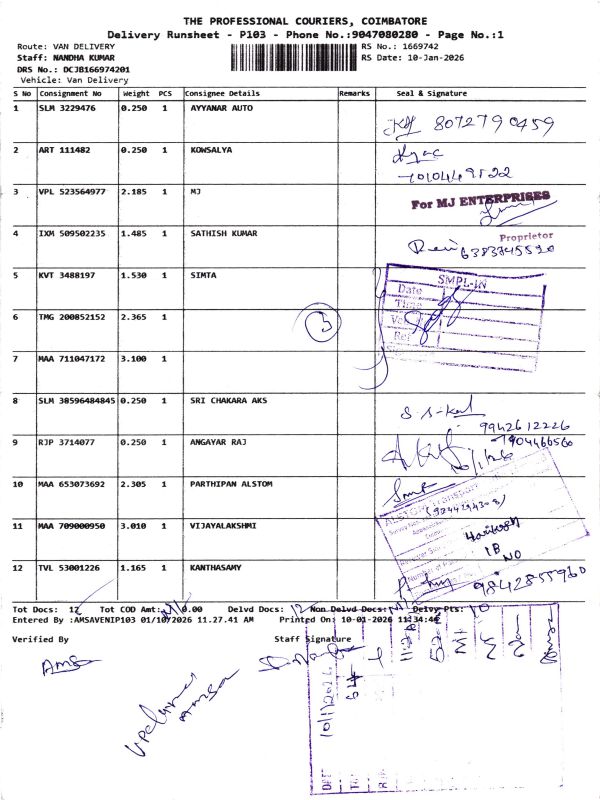 THE PROFESSIONAL COURIERS, COIMBATORE
Delivery Runsheet - P103 - Phone No.:9047080280 - Page No.:1
Route: VAN DELIVERY
RS No.: 1669742
Staff: NANDHA KUMAR
RS Date: 10-Jan-2026
DRS No.: DCJB166974201
Vehicle: Van Delivery
S No Consignment No Weight PCS Consignee Details Remarks Seal & Signature
1 SLM 3229476 0.250 1 AYYANAR AUTO
8072790459
2 ART 111482 0.250 1 KOWSALYA
3 VPL 523564977 2.185 1 MJ
For MJ ENTERPRISES
Proprietor
4 IXM 509502235 1.485 1 SATHISH KUMAR
5 KVT 3488197 1.530 1 SIMTA
SMPL-IN
Date
Time
6 TMG 200852152 2.365 1
3
Ref
7 MAA 711047172 3.100 1
8 SLM 38596484845 0.250 1 SRI CHAKARA AKS
9942612226
9 RJP 3714077 0.250 1 ANGAYAR RAJ
7904466560
10/1/26
10 MAA 653073692 2.305 1 PARTHIPAN ALSTOM
11 MAA 709000950 3.010 1 VIJAYALAKSHMI
12 TVL 53001226 1.165 1 KANTHASAMY
9842855960
Tot Docs: 12 Tot COD Amt: 0.00 Delvd Docs: 12 Non Delvd Docs: Delvy Pts: 10
Entered By :AMSAVENIP103 01/10/2026 11.27.41 AM Printed On: 10-01-2026 11:34:46
Verified By Staff Signature
Amsa
10/1/2026
Amsa